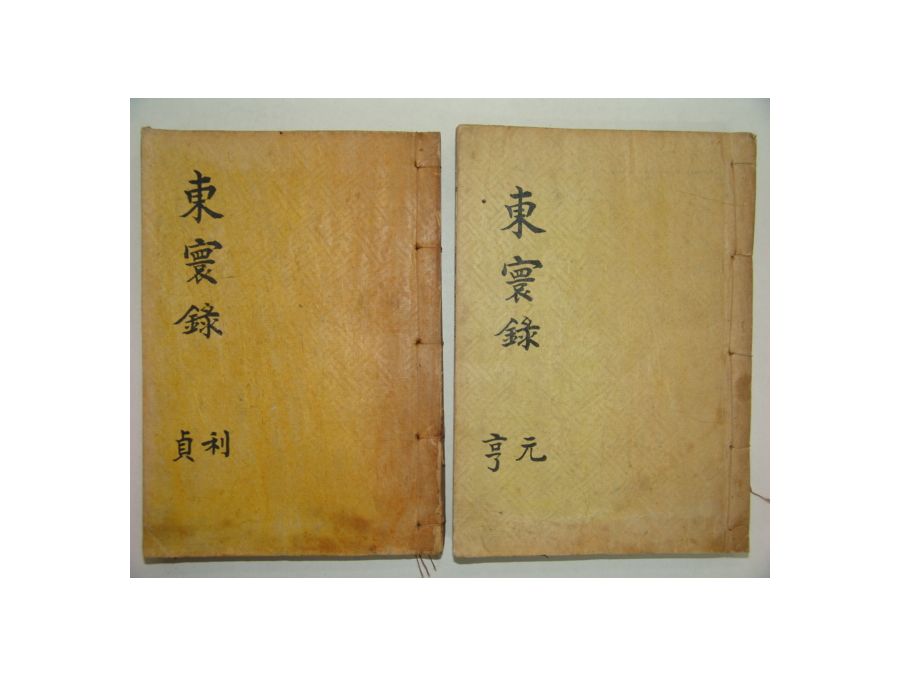 東寰錄
元亨
東寰錄
利貞